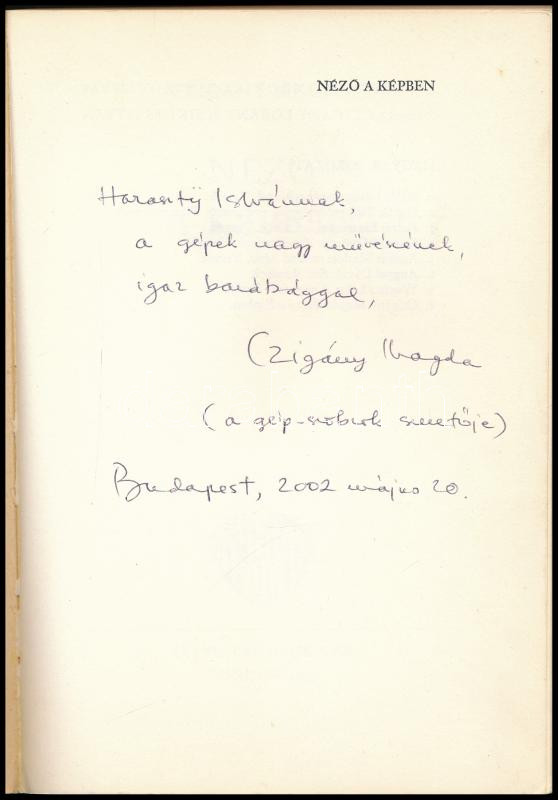 NÉZŐ A KÉPBEN
Harasztÿ Istvánnak,
a gépek nagy művészének,
igaz barátsággal,
Czigány Magda
(a gép-szobrok szeretője)
Budapest, 2002 május 20.